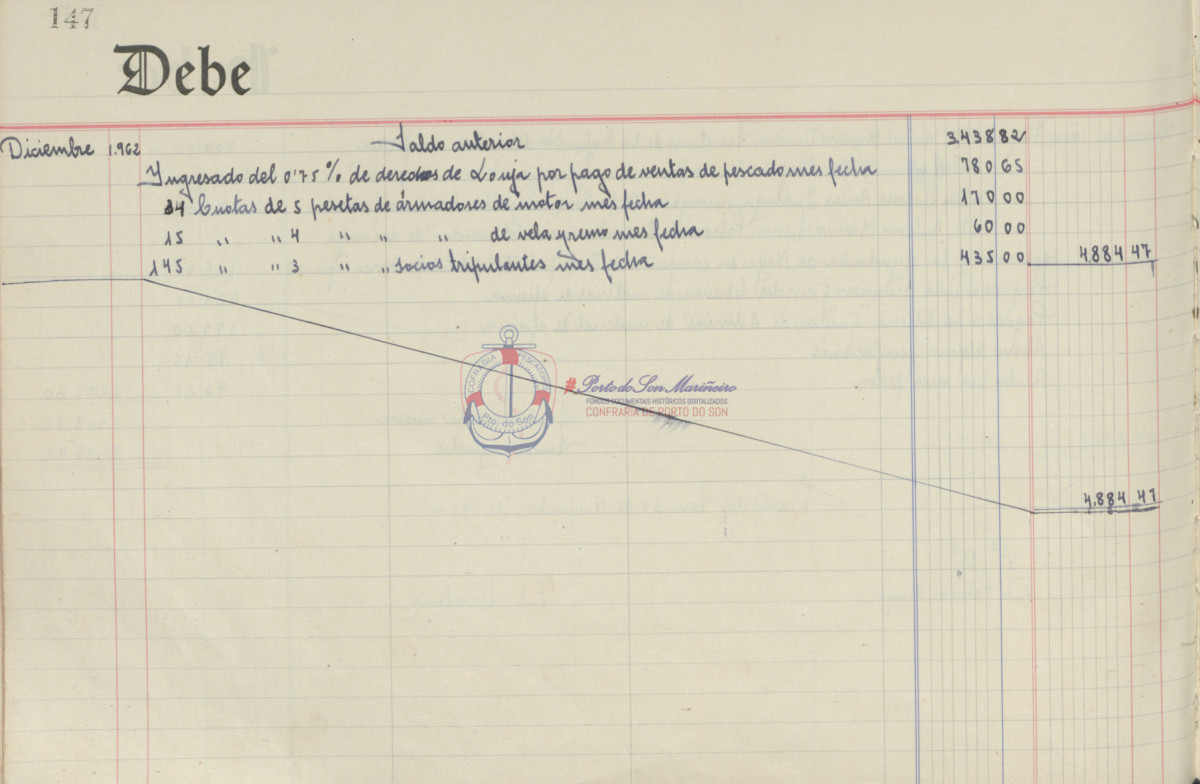 147
Debe
Diciembre 1.962 Saldo anterior 3.438 82
Ingresado del 0'75 % de derechos de Lonja por pago de ventas de pescado mes fecha 780 65
34 Cuotas de 5 pesetas de armadores de motor mes fecha 170 00
15 " " 4 " " " de vela y remo mes fecha 60 00
145 " " 3 " " socios tripulantes mes fecha 435 00 4.884 47
COFRADIA PESCADORES
Pto. do Son
#Porto do Son Mariñeiro
FONDOS DOCUMENTAIS HISTÓRICOS DIXITALIZADOS
CONFRARÍA DE PORTO DO SON
4.884 47